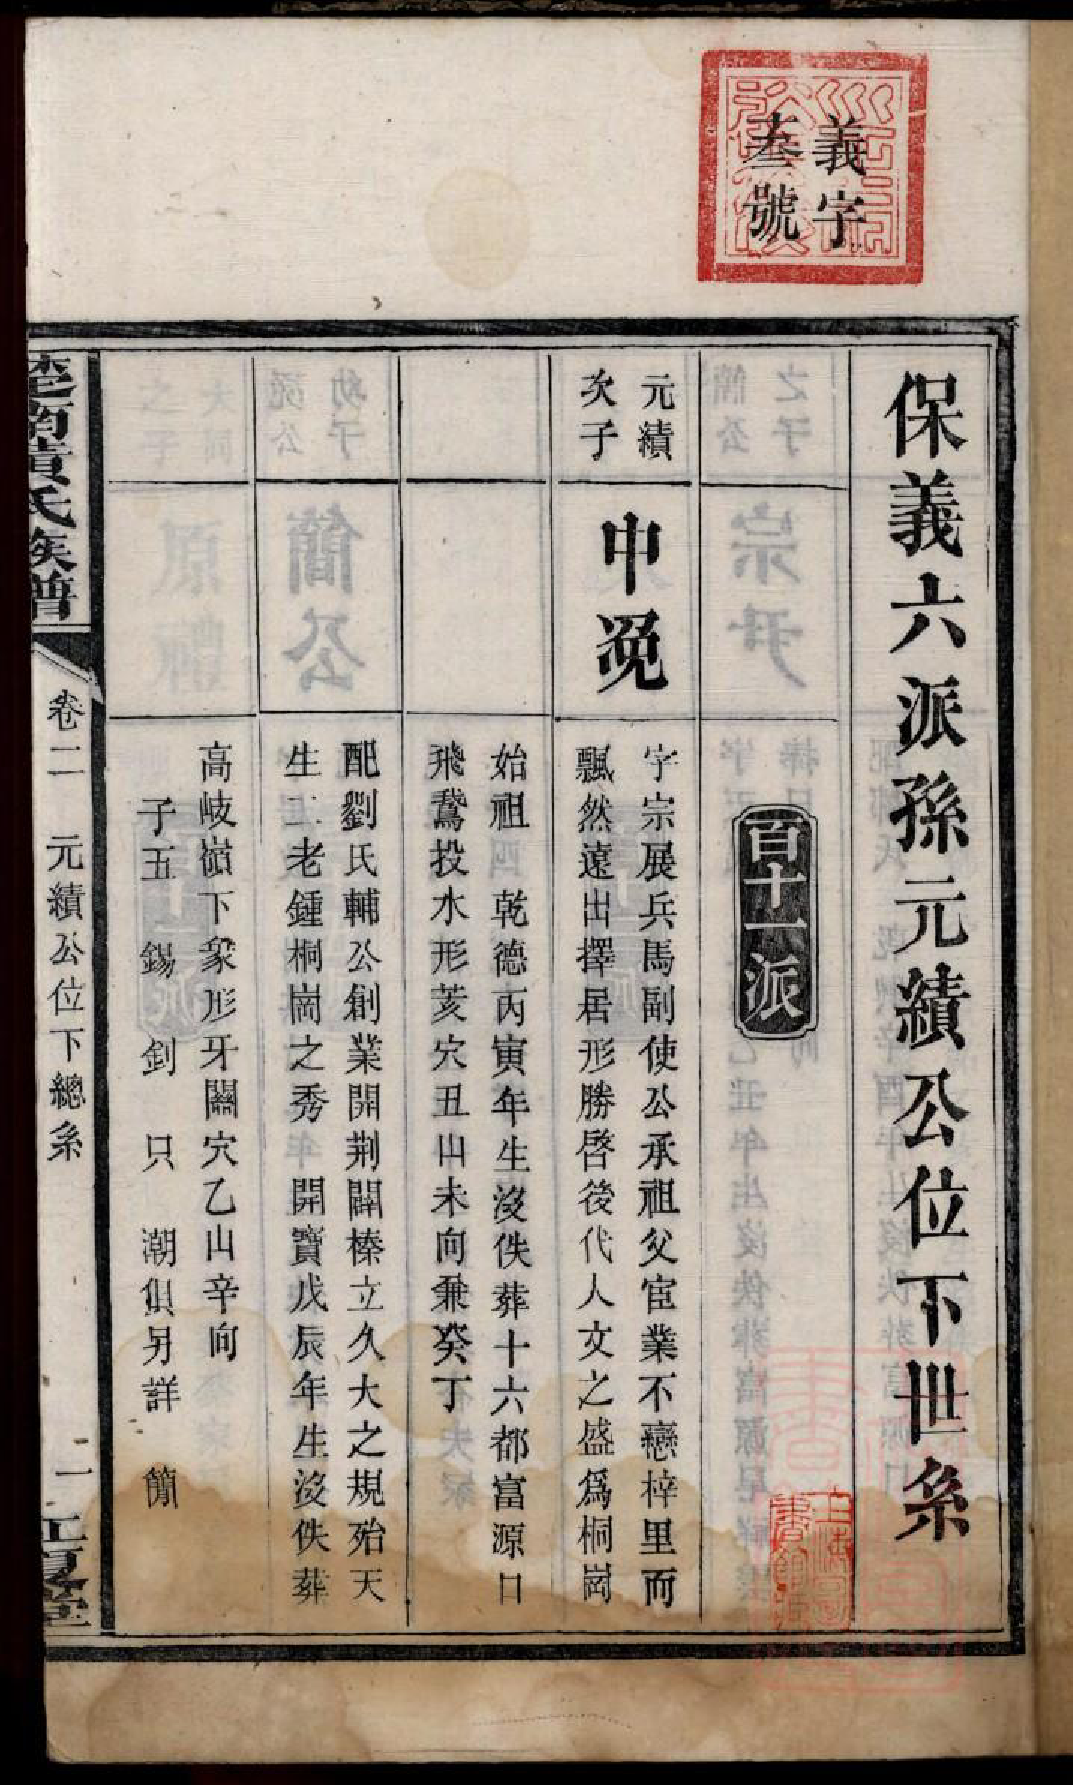 義字
叁號
保義六派孫元績公位下世系
百十一派
元績
次子
申冕
字宗展兵馬副使公承祖父宦業不戀梓里而
飄然遠出擇居形勝啓後代人文之盛爲桐崗
始祖 乾德丙寅年生沒佚葬十六都富源口
飛鵞投水形亥穴丑山未向兼癸丁
配劉氏輔公創業開荆闢榛立久大之規殆天
生二老鍾桐崗之秀 開寶戊辰年生沒佚葬
高岐嶺下象形牙關穴乙山辛向
子五 錫 釗 只 潮俱另詳 簡
楚南黃氏族譜
卷二 元績公位下總系
一
江夏堂